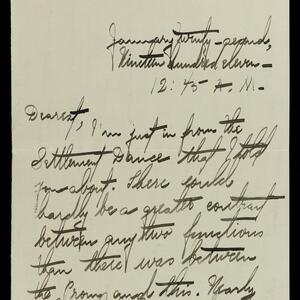 January twenty-second,
Nineteen hundred eleven—
12:45 A.M.
Dearest, I'm just in from the
Settlement Dance that I told
you about. There could
hardly be a greater contrast
between any two functions
than there was between
the Prom and this. Nearly